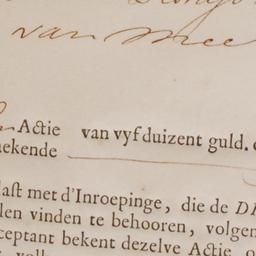 van Mee
Actie van vyf duizent guld.
ekende
last met d'Inroepinge, die de D
len vinden te behooren, volgen
ceptant bekent dezelve Actie